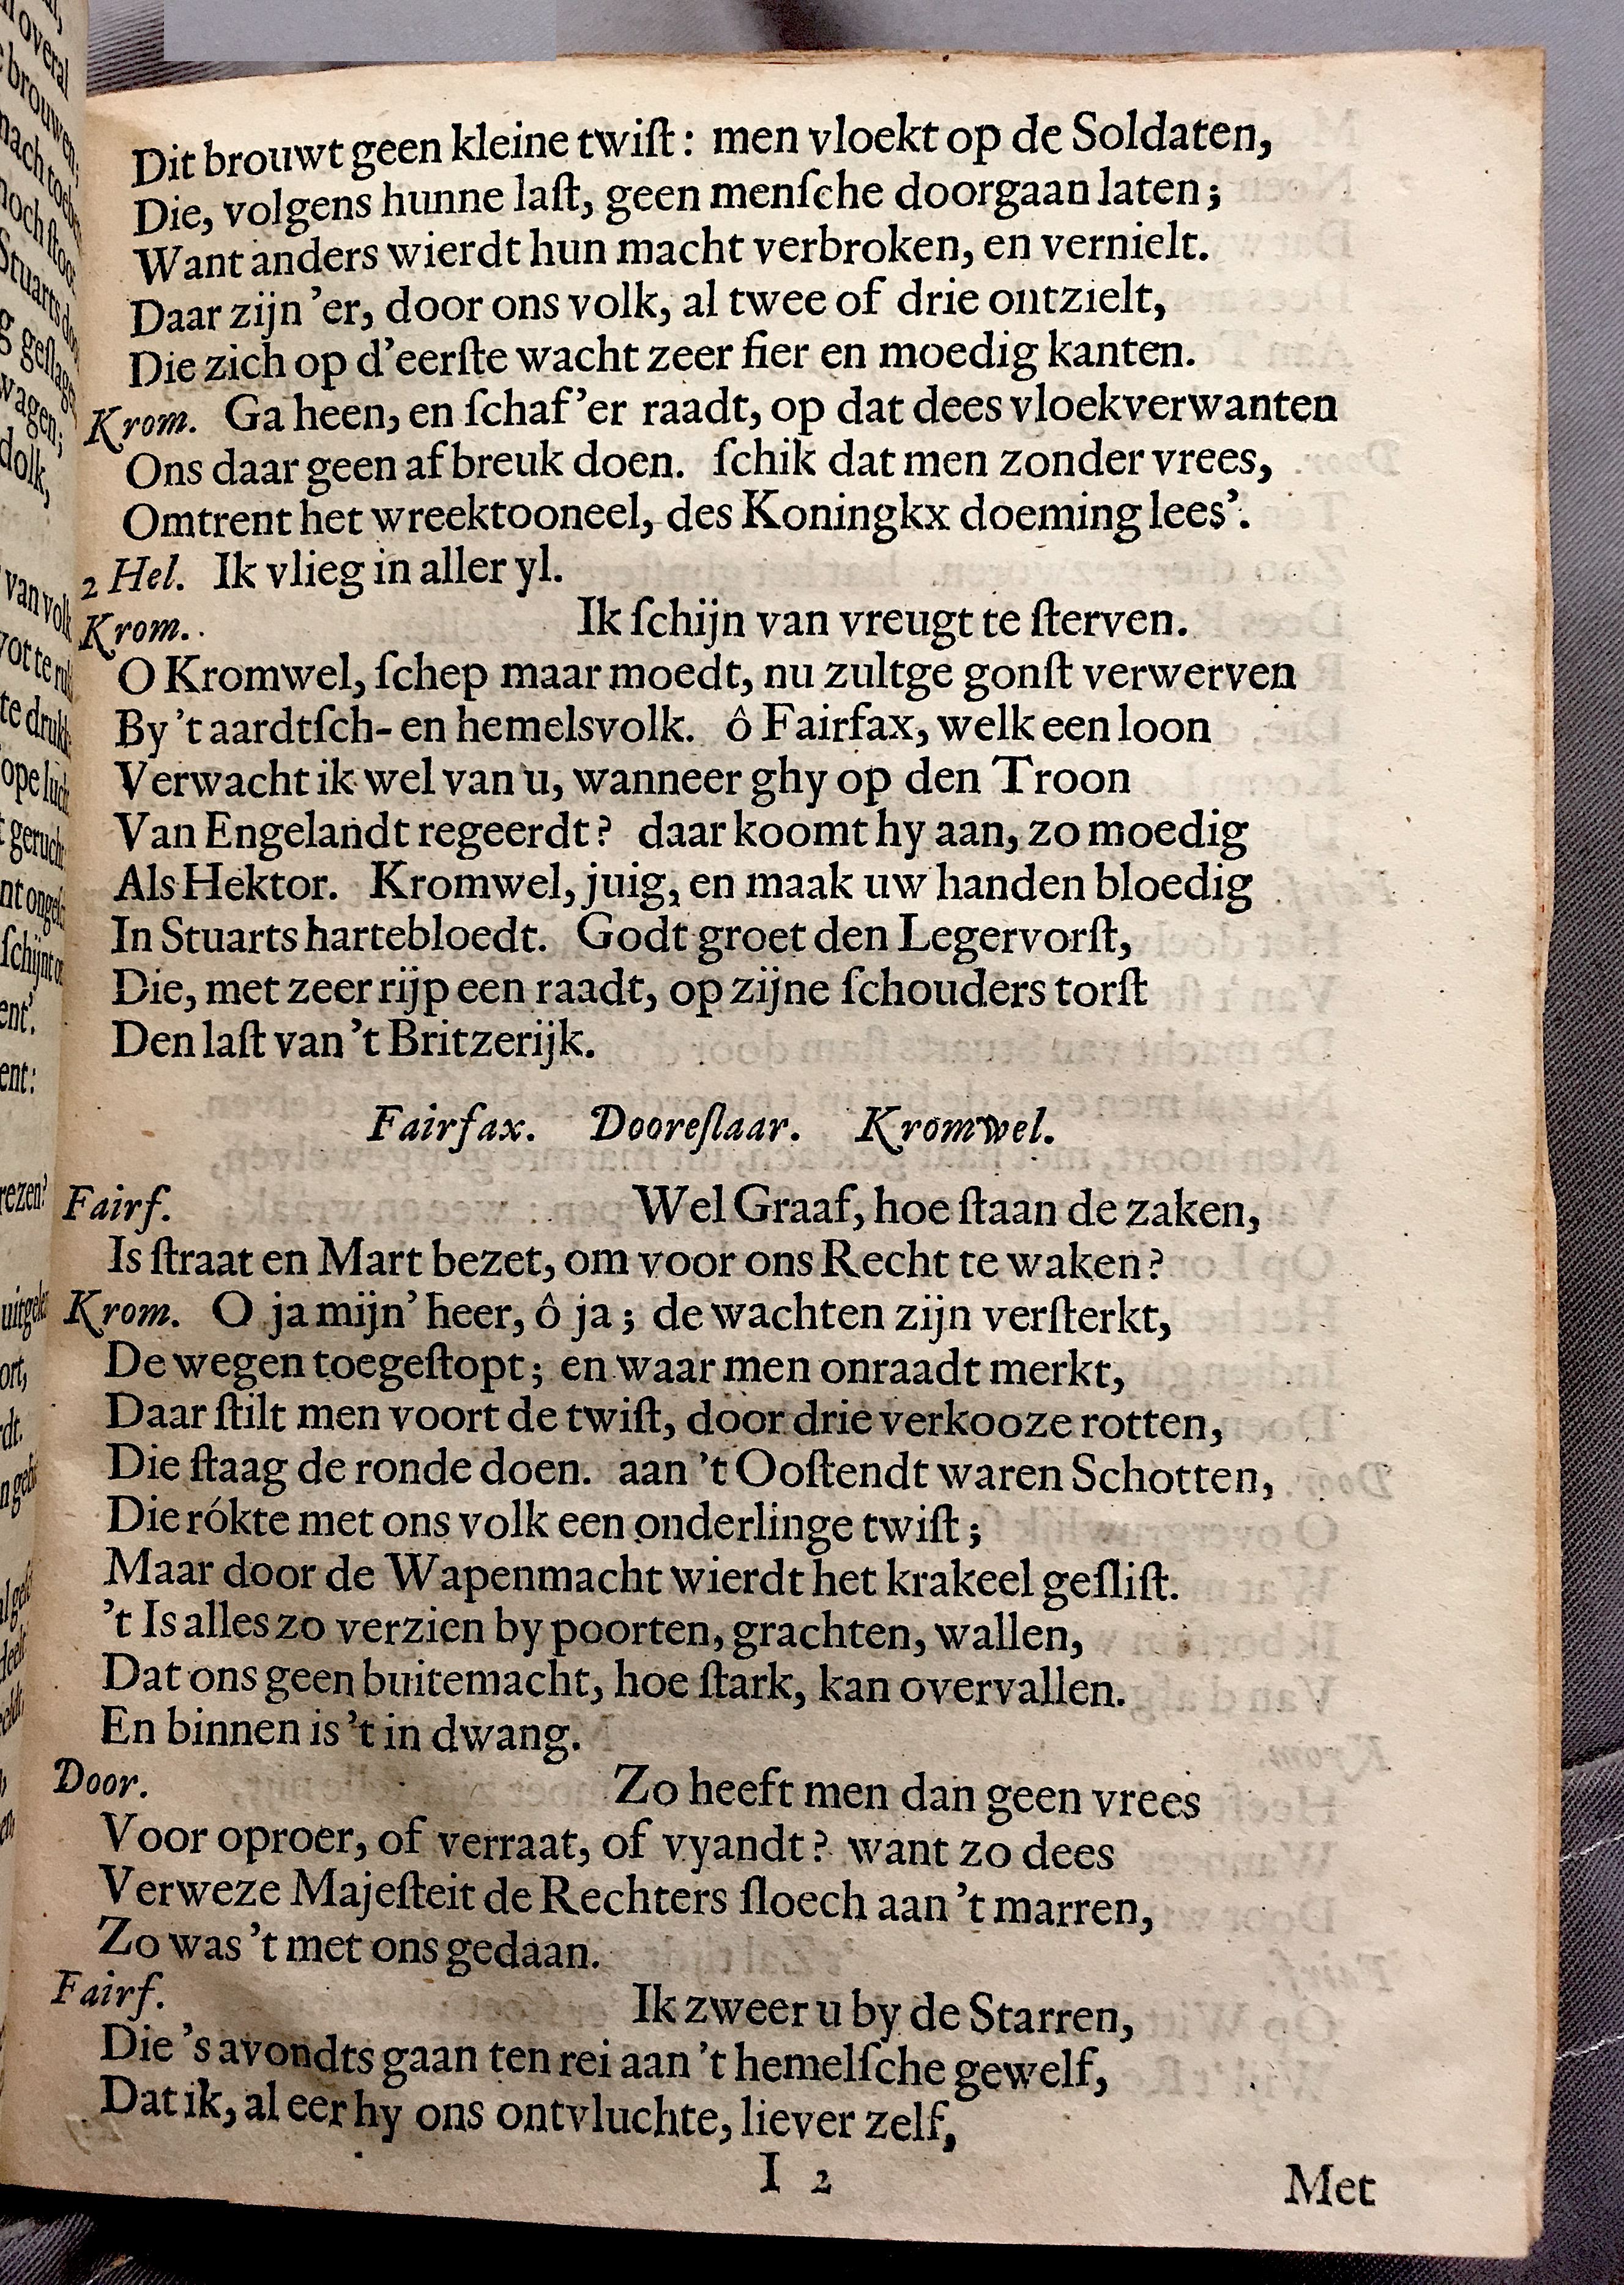 Dit brouwt geen kleine twiſt: men vloekt op de Soldaten,
Die, volgens hunne laſt, geen menſche doorgaan laten;
Want anders wierdt hun macht verbroken, en vernielt.
Daar zijn 'er, door ons volk, al twee of drie ontzielt,
Die zich op d'eerſte wacht zeer fier en moedig kanten.
Krom. Ga heen, en ſchaf 'er raadt, op dat dees vloekverwanten
Ons daar geen afbreuk doen. ſchik dat men zonder vrees,
Omtrent het wreektooneel, des Koningkx doeming lees'.
2 Hel. Ik vlieg in aller yl.
Krom. Ik ſchijn van vreugt te ſterven.
O Kromwel, ſchep maar moedt, nu zultge gonſt verwerven
By 't aardtſch- en hemelsvolk. ô Fairfax, welk een loon
Verwacht ik wel van u, wanneer ghy op den Troon
Van Engelandt regeerdt? daar koomt hy aan, zo moedig
Als Hektor. Kromwel, juig, en maak uw handen bloedig
In Stuarts hartebloedt. Godt groet den Legervorſt,
Die, met zeer rijp een raadt, op zijne ſchouders torſt
Den laſt van 't Britzerijk.
Fairfax. Dooreſlaar. Kromwel.
Fairf. Wel Graaf, hoe ſtaan de zaken,
Is ſtraat en Mart bezet, om voor ons Recht te waken?
Krom. O ja mijn' heer, ô ja; de wachten zijn verſterkt,
De wegen toegeſtopt; en waar men onraadt merkt,
Daar ſtilt men voort de twiſt, door drie verkooze rotten,
Die ſtaag de ronde doen. aan 't Ooſtendt waren Schotten,
Die rókte met ons volk een onderlinge twiſt;
Maar door de Wapenmacht wierdt het krakeel geſliſt.
't Is alles zo verzien by poorten, grachten, wallen,
Dat ons geen buitemacht, hoe ſtark, kan overvallen.
En binnen is 't in dwang.
Door. Zo heeft men dan geen vrees
Voor oproer, of verraat, of vyandt? want zo dees
Verweze Majeſteit de Rechters ſloech aan 't marren,
Zo was 't met ons gedaan.
Fairf. Ik zweer u by de Starren,
Die 's avondts gaan ten rei aan 't hemelſche gewelf,
Dat ik, al eer hy ons ontvluchte, liever zelf,
I 2
Met